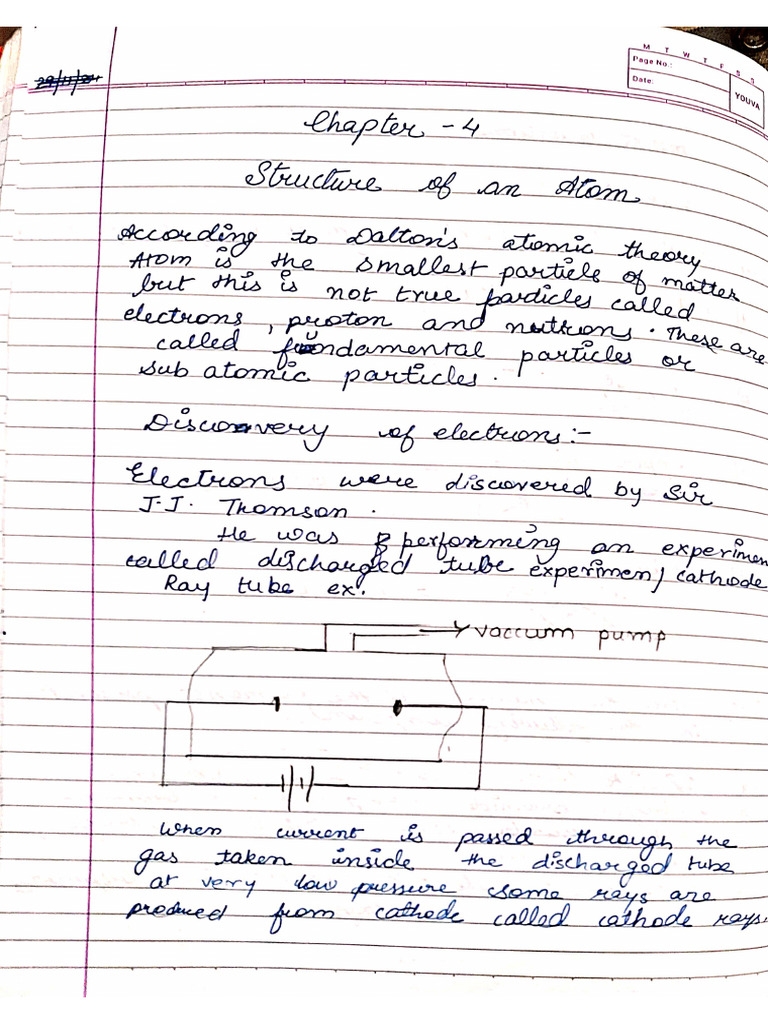 29/11/24
M T W T F S S
Page No.:
Date:
YOUVA
Chapter - 4
Structure of an Atom
According to Dalton's atomic theory
Atom is the smallest particle of matter
but this is not true particles called
electrons, proton and nutrons. These are
called fundamental particles or
sub atomic particles.
Discovery of electrons:-
Electrons were discovered by Sir
J.J. Thomson.
He was performing an experimen
called discharged tube experimen/cathode
Ray tube ex.
vaccum pump
When current is passed through the
gas taken inside the discharged tube
at very low pressure some rays are
produced from cathode called cathode rays.